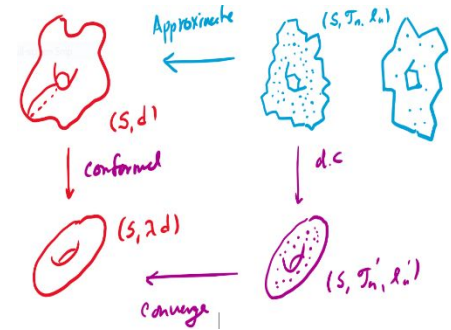 Approximate
(S, 𝒯n, ln)
(S, d)
conformal
d.c
(S, λd)
(S, 𝒯n', ln')
Converge